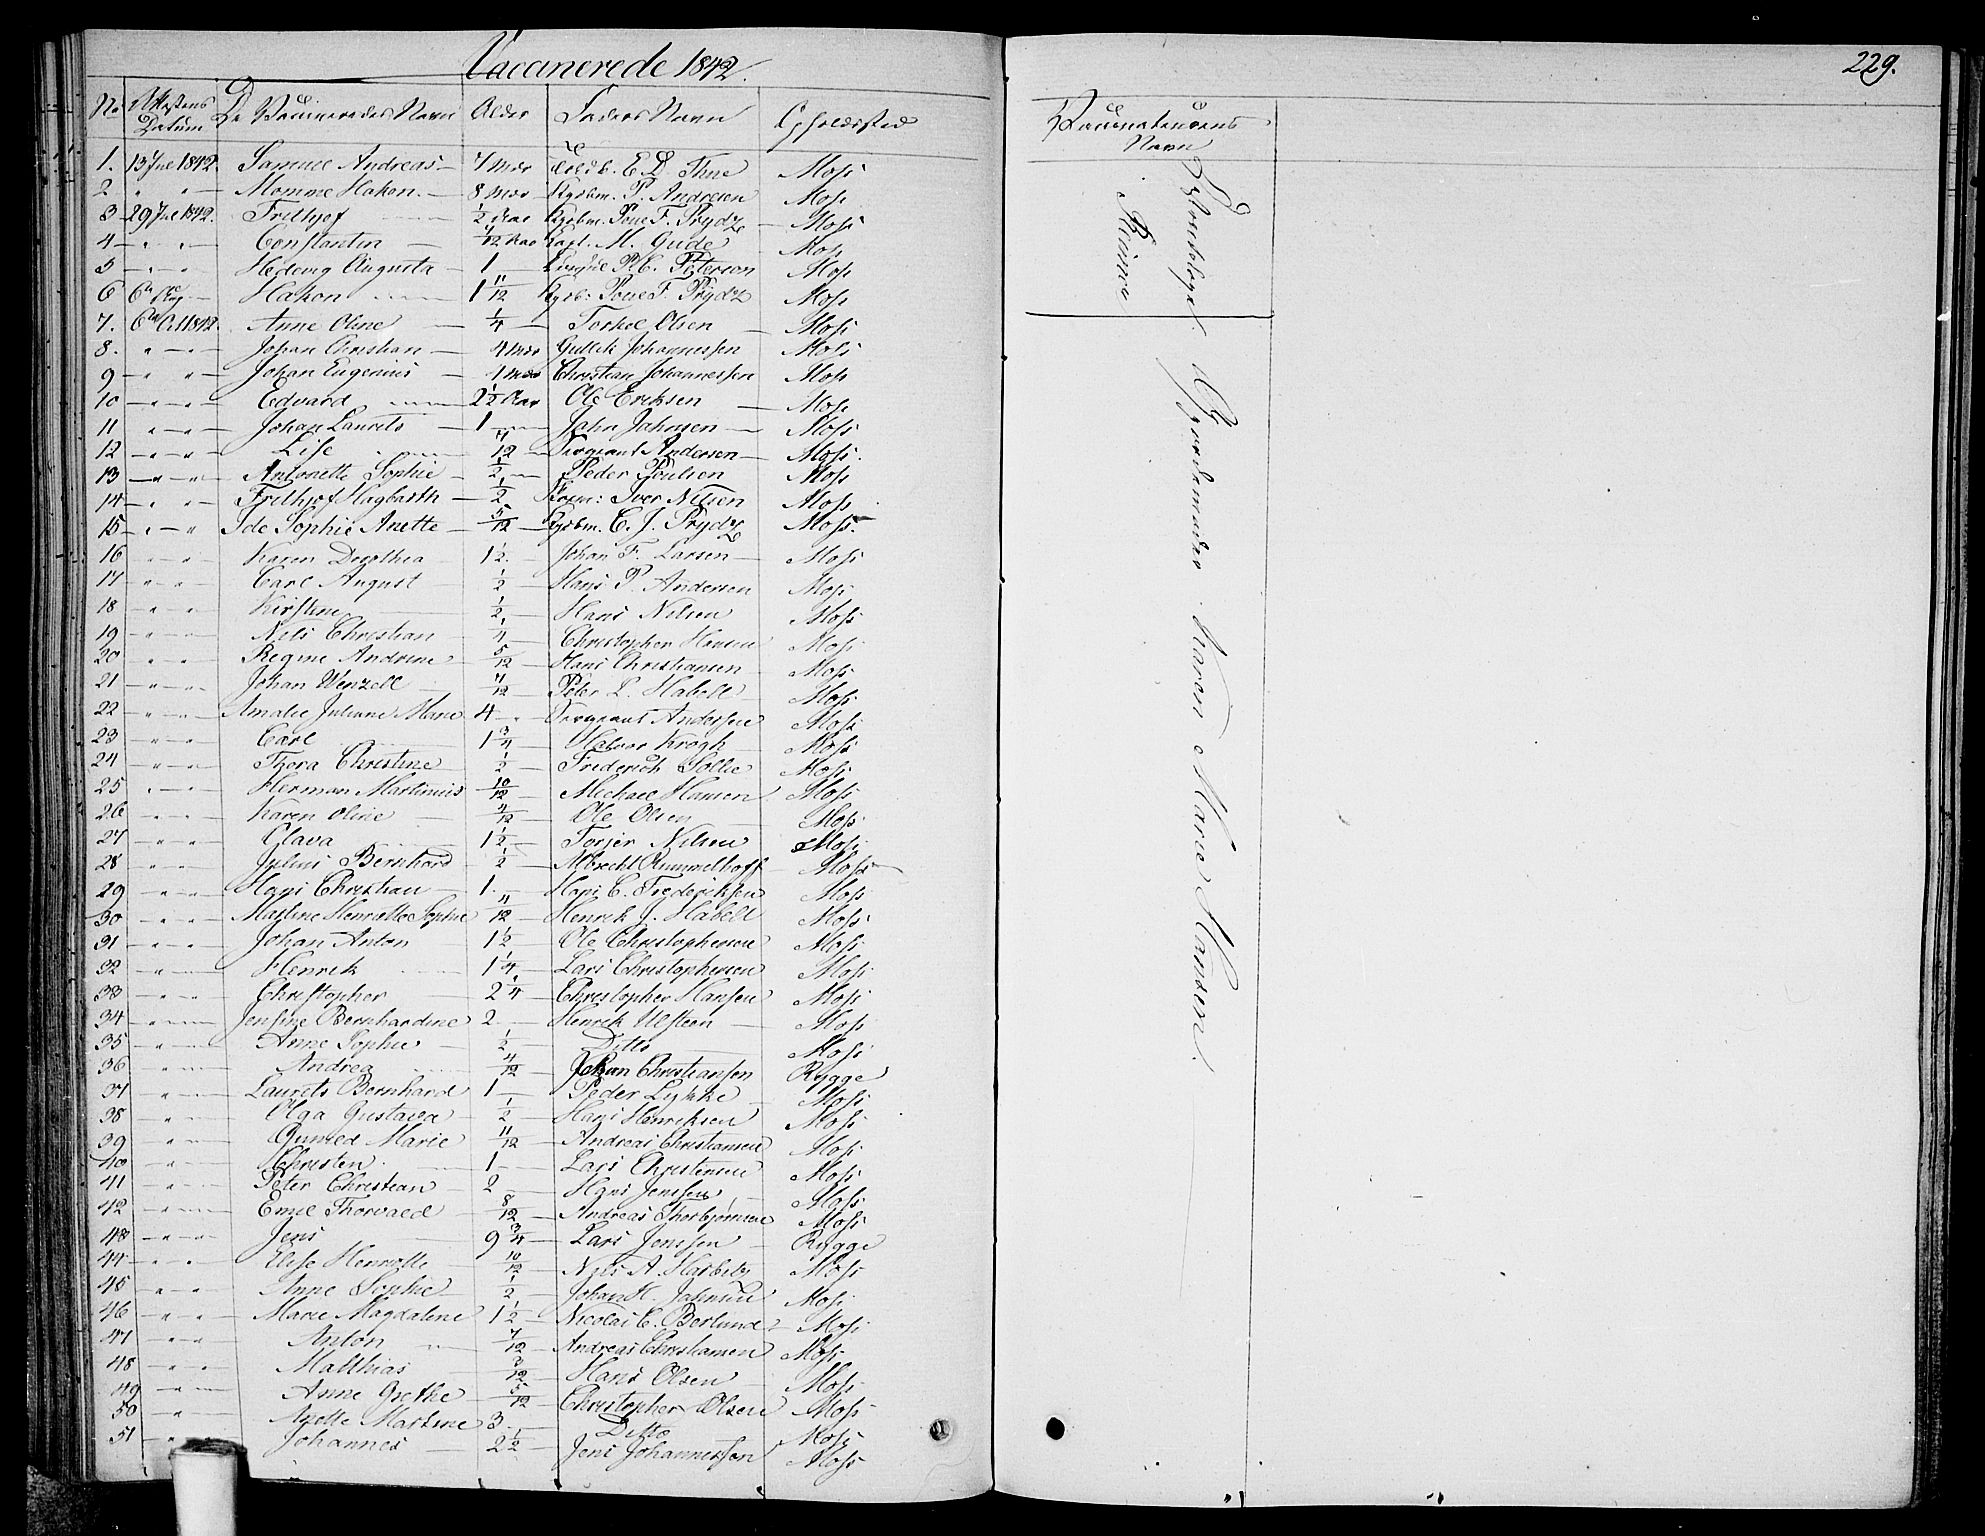 Vaccinerede 1842.
229.
No Attestens Datum De Vaccineredes Navn Alder Faders Navn Opholdssted
Vaccinateurens Navn
1. 13 Jul 1842. Samuel Andreas 7 Mdr E. D. Thne Moss
2 " " Momme Hakon 8 Mdr Kjøbm. P. Andresen Moss
3 29 Jul 1842. Frithjof 1/2 Aar Kjøbm. Poul F. Prydz Moss
4 " " Constantin /12 Aar Capt. M. Gude Moss
5 " " Hedevig Augusta 1 Consul P. C. Peterson Moss
6 6te Aug Hakon 1 11/12 Kjøb: Poul F. Prydz Moss
7. 6te 1842. Anne Oline 1/4 Torkel Olsen Moss
8. " " Johan Christian 4 Mdr Gullik Johannessen Moss
9 " " Johan Eugenius 1 Mdr Christian Johannessen Moss
10 " " Edvard 2 1/2 Aar Ole Eriksen Moss
11 " " Johan Laurits 1 Jahn Jahnsen Moss
12 " " Lise /12 Sergeant Andersen Moss
13 " " Antonette Sophie 1/2 Peder Poulsen Moss
14 " " Frithjof Hagbarth 1/2 Iver Nilsen Moss
15 " " Ide Sophie Anette 5/12 Kjøbm. C. J. Prydz Moss
16 " " Karen Dorothea 1 1/2 Johan F. Larsen Moss
17 " " Carl August 1/2 Hans P. Andersen Moss
18 " " Kirstine 1/2 Hans Nilsen Moss
19 " " Nils Christian 1/4 Christopher Hansen Moss
20 " " Regine Andrine 5/12 Hans Christiansen Moss
21 " " Johan Wenzell /12 Peter L. Habell Moss
22 " " Amalie Juliane Marie 4 Sergeant Andersen Moss
23 " " Carl 1 3/4 Halvor Krogh Moss
24 " " Thora Christine 1/2 Frederich Sollie Moss
25 " " Herman Martinius 10/12 Michael Hansen Moss
26 " " Karen Oline /12 Ole Olsen Moss
27 " " Olava 1 1/2 Torjer Nilsen Moss
28 " " Julius Bernhard 1/2 Albrecht Rummelhoff Moss
29 " " Hans Christian 1. Hans C. Frederiksen Moss
30 " " Martine Henriette Sophie 11/12 Henrik J. Habell Moss
31 " " Johan Anton 1 1/2 Ole Christophersen Moss
32 " Henrik 1 1/4 Lars Christophersen Moss
33 " " Christopher 2 1/4 Christopher Hansen Moss
34 " Jensine Bernhardine 2. Henrik Ulsteen Moss
35 " Anne Sophie 1/2 Ditto Moss
36 " Andrea 4/12 Johan Christiansen Rygge
37 " Laurits Bernhard 1 Peder Lykke Moss
38 " Olga Gustava 1/2 Hans Henriksen Moss
39 " Gunild Marie 11/12 Andreas Christiansen Moss
40 " Christen 1 Lars Christensen Moss
41 " " Peter Christian 2 Hans Jenssen Moss
42 " Emil Thorvald 8/12 Andreas Thorbjørnsen Moss
43 " " Jens 9 3/4 Lars Jenssen Rygge
44 " " Elise Henriette 10/12 Nils A. Moss
45 " " Anne Sophie 1/2 Johan H. Jahnsen Moss
46 " " Marie Magdalene 1 1/2 Nicolai C. Berlund Moss
47 " " Anton 7/12 Andreas Christiansen Moss
48 " " Matthias /12 Hans Olsen Moss
49 " Anne Grethe 5/12 Christopher Olsen Moss
50 " Anette Martine 3 Ditto Moss
51 " Johannes 2 1/2 Jens Johannessen Moss
Districtslæge
Gjordemoder Karen Marie Hansen.